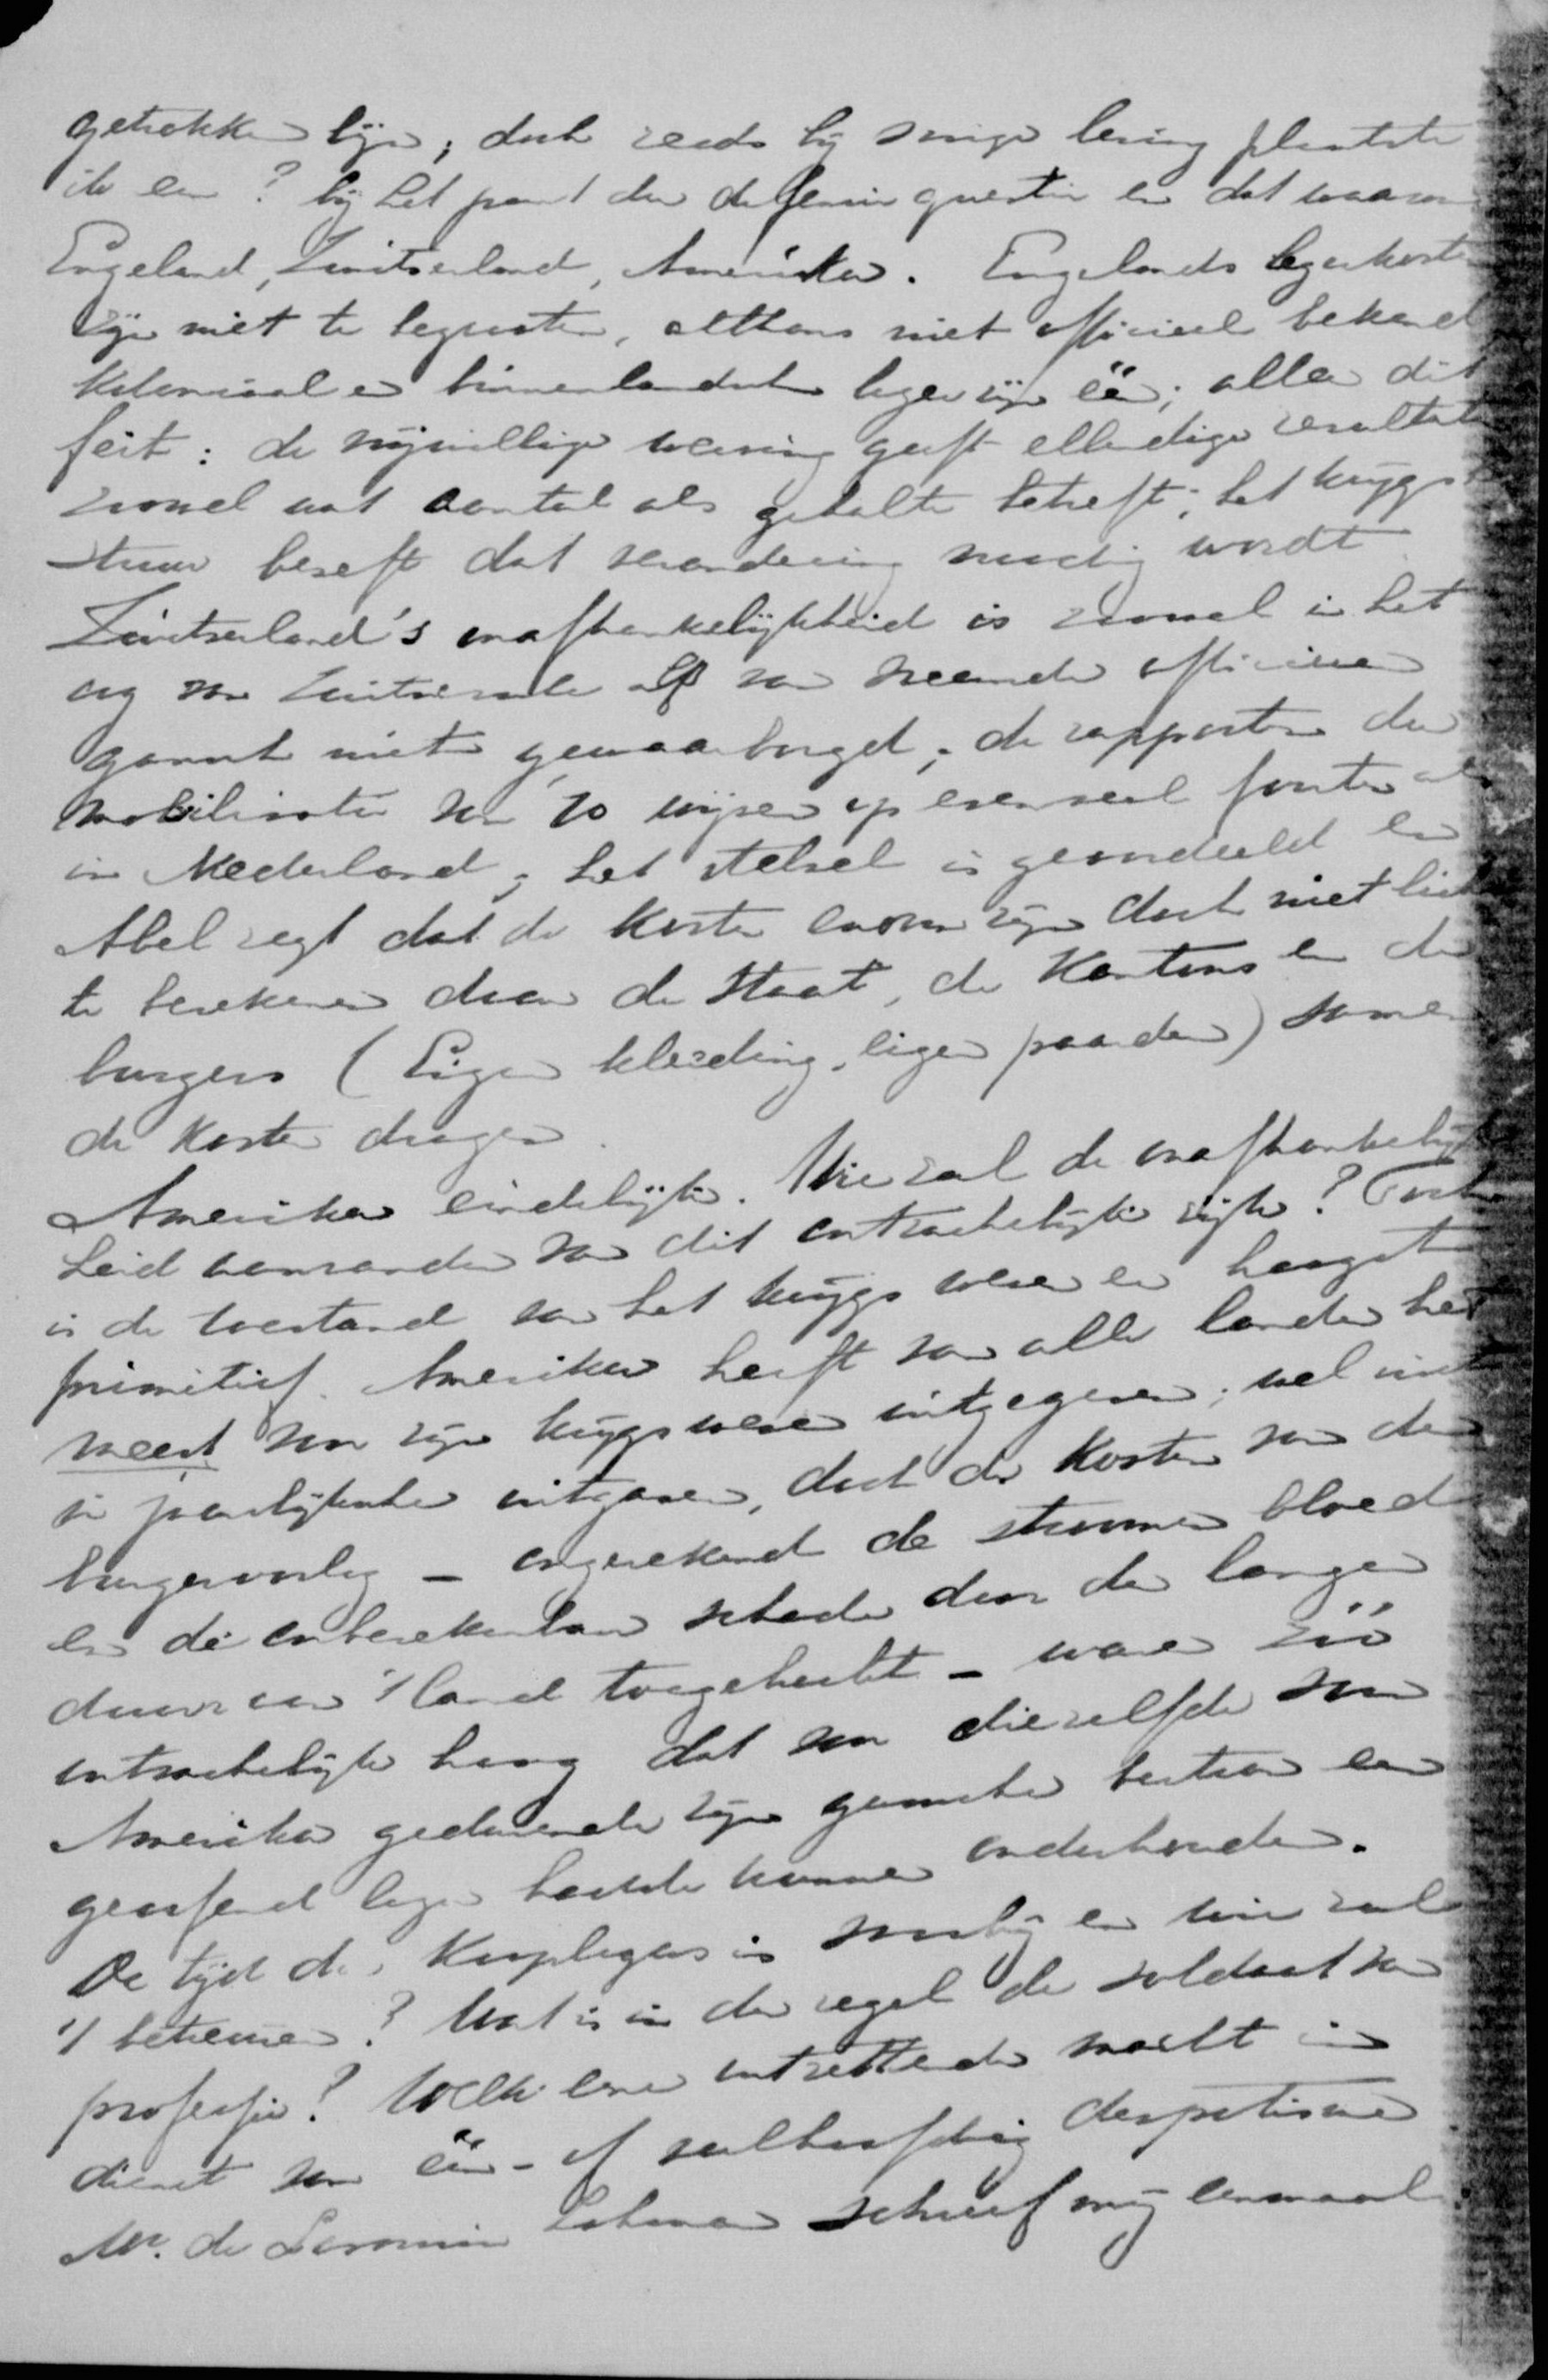 getrokken lijn; doch reeds bij vorige lezing plaatste
ik een ? bij het punt der defensie questie en dat waarom
Engeland, Zwitserland, Amerika. Engelands legerkosten
zijn niet te begrooten, althans niet officieel bekend
Koloniaal en binnenlandsch leger zijn één; alleen dit
feit: de vrijwillige werving geeft ellendige resultaten
zoowel wat aantal als gehalte betreft; het krijgs-
stuur beseft dat verandering noodig wordt
Zwitserland's onafhankelijkheid is zoowel in het
oog van Zwitsersche als van vreemde officieren
gansch niet gewaarborgd; de rapporten der
mobilisatie van 70 wijzen op evenveel fouten als
in Nederland; het stelsel is geoordeeld en
Abel zegt dat de kosten enorm zijn doch niet licht
te berekenen daar de Staat, de Kantons en de
burgers (Eigen kleeding, eigen paarden) samen
de kosten dragen.
Amerika eindelijk. Wie zal de onafhankelijk-
heid aanranden van dit ontzachelijk rijk? Toch
is de toestand van het krijgswezen er hoogst
primitief. Amerika heeft van alle landen het
meest van zijn krijgswezen uitgegeven; wel niet
in jaarlijksche uitgaven, doch de kosten van den
burgeroorlog - ongerekend de stroomen bloed
en de onberekenbare schade door den langen
duur aan 't land toegebracht - waren zóó
ontzachelijk hoog dat van diezelfde som
Amerika gedurende zijn gansche bestaan een
geoefend leger hadde kunnen onderhouden.
De tijd der Kooplegers is voorbij en wie zal
't betreuren? Wat is in den regel de soldaat van
professie? Welk eene ontzettende macht in
dienst van één- of veelhoofdig despotisme.
Mr. de Savornin Lohman schreef mij eenmaal